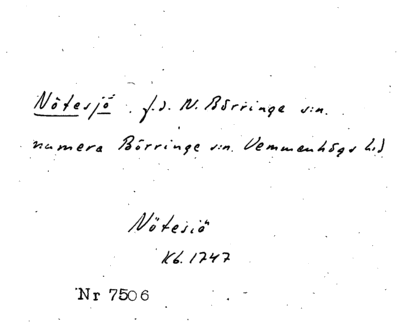 Nötesjö f.d. N. Börringe s:n.
numera Börringe s:n. Vemmenhögs h.d
Nötesiö
Kb. 1747
Nr 7506